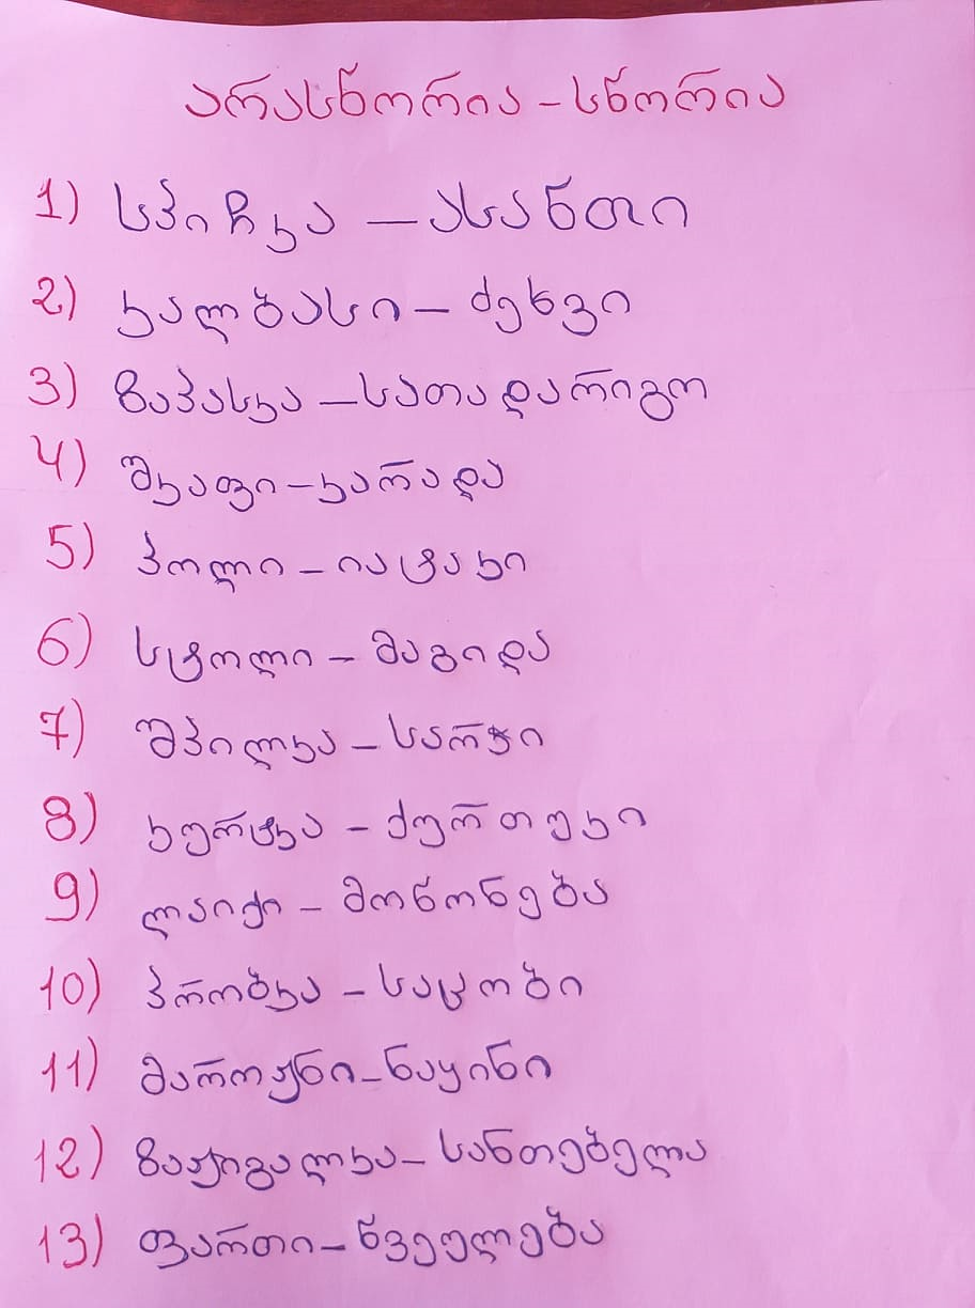 არასწორია - სწორია
1) სპიჩკა - ასანთი
2) კალბასი - ძეხვი
3) ზაპასკა - სათადარიგო
4) შკაფი - კარადა
5) პოლი - იატაკი
6) სტოლი - მაგიდა
7) შპილკა - სარჭი
8) კურტკა - ქურთუკი
9) ლაიქი - მოწონება
10) პრობკა - საცობი
11) მაროჟნი - ნაყინი
12) ზაჟიგალკა - სანთებელა
13) ფართი - წვეულება